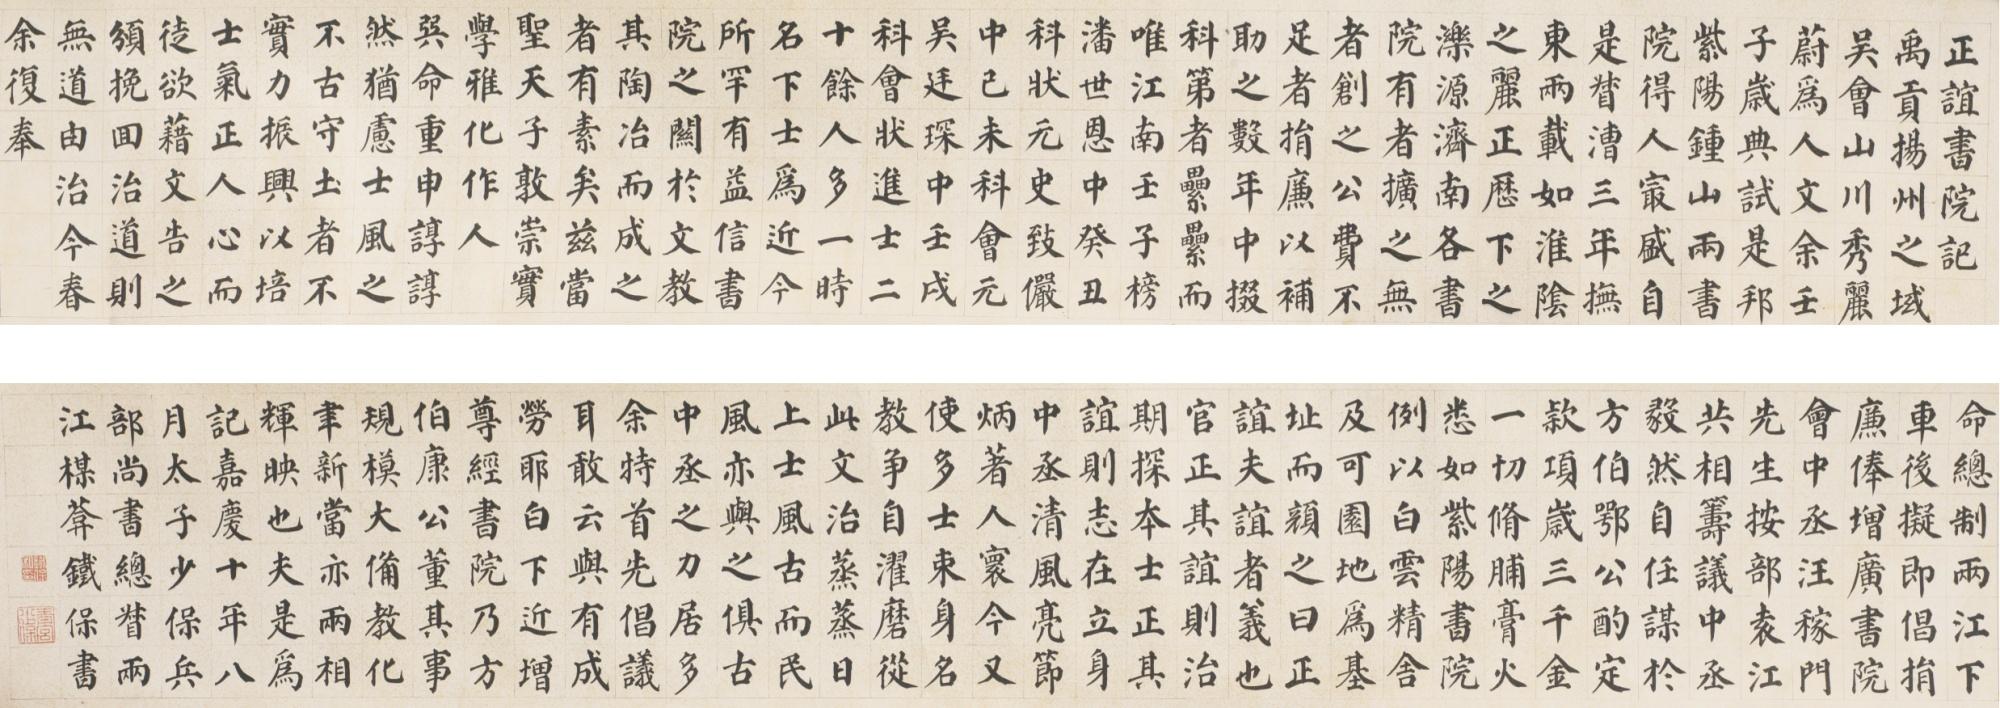 正誼書院記
禹貢揚州之域
吳會山川秀麗
蔚爲人文余壬
子歲典試是邦
紫陽鍾山兩書
院得人寂盛自
是督漕三年撫
東兩載如淮陰
之麗正歷下之
濼源濟南各書
院有者擴之無
者創之公費不
足者捐廉以補
助之數年中掇
科第者纍纍而
唯江南壬子榜
潘世恩中癸丑
科狀元史致儼
中己未科會元
吳廷琛中壬戌
科會狀進士二
十餘人多一時
名下士爲近今
所罕有益信書
院之關於文教
其陶冶而成之
者有素矣茲當
聖天子敦崇實
學雅化作人
巽命重申諄諄
然猶慮士風之
不古守土者不
實力振興以培
士氣正人心而
徒欲藉文告之
頒挽回治道則
無道由治今春
余復奉
命總制兩江下
車後擬即倡捐
廉俸增廣書院
會中丞汪稼門
先生按部袁江
共相籌議中丞
毅然自任謀於
方伯鄂公酌定
款項歲三千金
一切脩脯膏火
悉如紫陽書院
例以白雲精舍
及可園地爲基
址而顏之曰正
誼夫誼者義也
官正其誼則治
期探本士正其
誼則志在立身
中丞清風亮節
炳著人寰今又
使多士束身名
教爭自濯磨從
此文治蒸蒸日
上士風古而民
風亦與之俱古
中丞之力居多
余特首先倡議
耳敢云與有成
勞耶白下近增
尊經書院乃方
伯康公董其事
規模大備教化
聿新當亦兩相
輝映也夫是爲
記嘉慶十年八
月太子少保兵
部尚書總督兩
江棋葊鐵保書